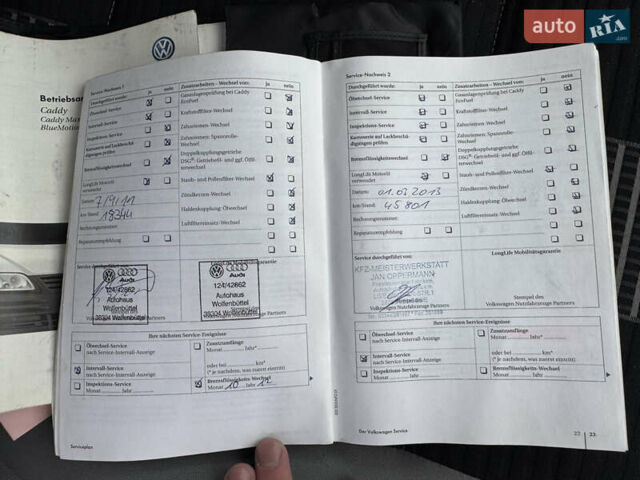 auto RIA .com
Betriebsan
Caddy
Caddy Max
BlueMotion
Service-Nachweis 1
Durchgeführt wurde: ja nein Zusatzarbeiten - Wechsel von: ja nein
Ölwechsel-Service Gasanlagenprüfung bei Caddy
EcoFuel
Intervall-Service Kraftstofffilter-Wechsel
Inspektions-Service Zahnriemen-Wechsel
Karosserie auf Lackbeschä-
digungen prüfen Zahnriemen: Spannrolle-
Wechsel
Bremsflüssigkeitswechsel Doppelkupplungsgetriebe
DSG®: Getriebeöl- und ggf. Ölfil-
terwechsel
LongLife Motoröl
verwendet Staub- und Pollenfilter-Wechsel
Datum: 7/9/11 Zündkerzen-Wechsel
km-Stand: 18344 Haldexkupplung-Ölwechsel
Rechnungsnummer: Luftfiltereinsatz-Wechsel
Reparaturempfehlung
Service durchgeführt von: LongLife Mobilitätsgarantie
Audi
124/42662
Autohaus
Wolfenbüttel
38304 Wolfenbüttel
Audi
124/42662
Autohaus
Wolfenbüttel
38304 Wolfenbüttel
Ihre nächsten Service-Ereignisse
Ölwechsel-Service
nach Service-Intervall-Anzeige
Zusatzumfänge
Monat Jahr*
Intervall-Service
nach Service-Intervall-Anzeige
oder bei km*
(* je nachdem, was zuerst eintritt)
Inspektions-Service
Monat Jahr
Bremsflüssigkeits-Wechsel
Monat 10 Jahr 12
Serviceplan
Service-Nachweis 2
Durchgeführt wurde: ja nein Zusatzarbeiten - Wechsel von: ja nein
Ölwechsel-Service Gasanlagenprüfung bei Caddy
EcoFuel
Intervall-Service Kraftstofffilter-Wechsel
Inspektions-Service Zahnriemen-Wechsel
Karosserie auf Lackbeschä-
digungen prüfen Zahnriemen: Spannrolle-
Wechsel
Bremsflüssigkeitswechsel Doppelkupplungsgetriebe
DSG®: Getriebeöl- und ggf. Ölfil-
terwechsel
LongLife Motoröl
verwendet Staub- und Pollenfilter-Wechsel
Datum: 01.03.2013 Zündkerzen-Wechsel
km-Stand: 45801 Haldexkupplung-Ölwechsel
Rechnungsnummer: Luftfiltereinsatz-Wechsel
Reparaturempfehlung
Service durchgeführt von: LongLife Mobilitätsgarantie
KFZ-MEISTERWERKSTATT
JAN OPPERMANN
Stempel des
Volkswagen Nutzfahrzeuge Partners
Ihre nächsten Service-Ereignisse
Ölwechsel-Service
nach Service-Intervall-Anzeige
Zusatzumfänge
Monat Jahr*
Intervall-Service
nach Service-Intervall-Anzeige
oder bei km*
(* je nachdem, was zuerst eintritt)
Inspektions-Service
Monat Jahr
Bremsflüssigkeits-Wechsel
Monat Jahr
Der Volkswagen Service
22 23